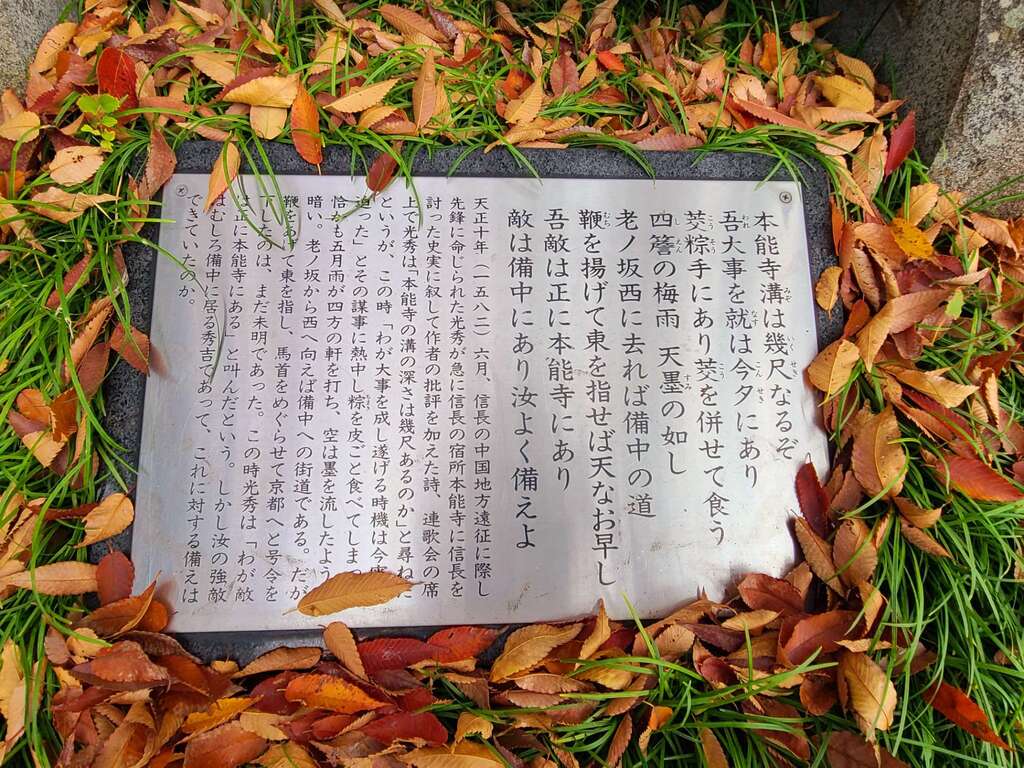 本能寺溝は幾尺なるぞ
吾大事を就は今夕にあり
茭粽手にあり茭を併せて食う
四簷の梅雨 天墨の如し
老ノ坂西に去れば備中の道
鞭を揚げて東を指せば天なお早し
吾敵は正に本能寺にあり
敵は備中にあり汝よく備えよ
天正十年（一五八二）六月、信長の中国地方遠征に際し
先鋒に命じられた光秀が急に信長の宿所本能寺に信長を
討った史実に叙して作者の批評を加えた詩、連歌会の席
上で光秀は「本能寺の溝の深さは幾尺あるのか」と尋ねた
というが、この時「わが大事を成し遂げる時機は今宵
迫った」とその謀事に熱中し粽を皮ごと食べてしまっ
恰かも五月雨が四方の軒を打ち、空は墨を流したよう
暗い。老ノ坂から西へ向えば備中への街道である。だが
鞭をあげて東を指し、馬首をめぐらせて京都へと号令を
下したのは、まだ未明であった。この時光秀は「わが敵
は正に本能寺にある」と叫んだという。しかし汝の強敵
はむしろ備中に居る秀吉であって、これに対する備えは
できていたのか。